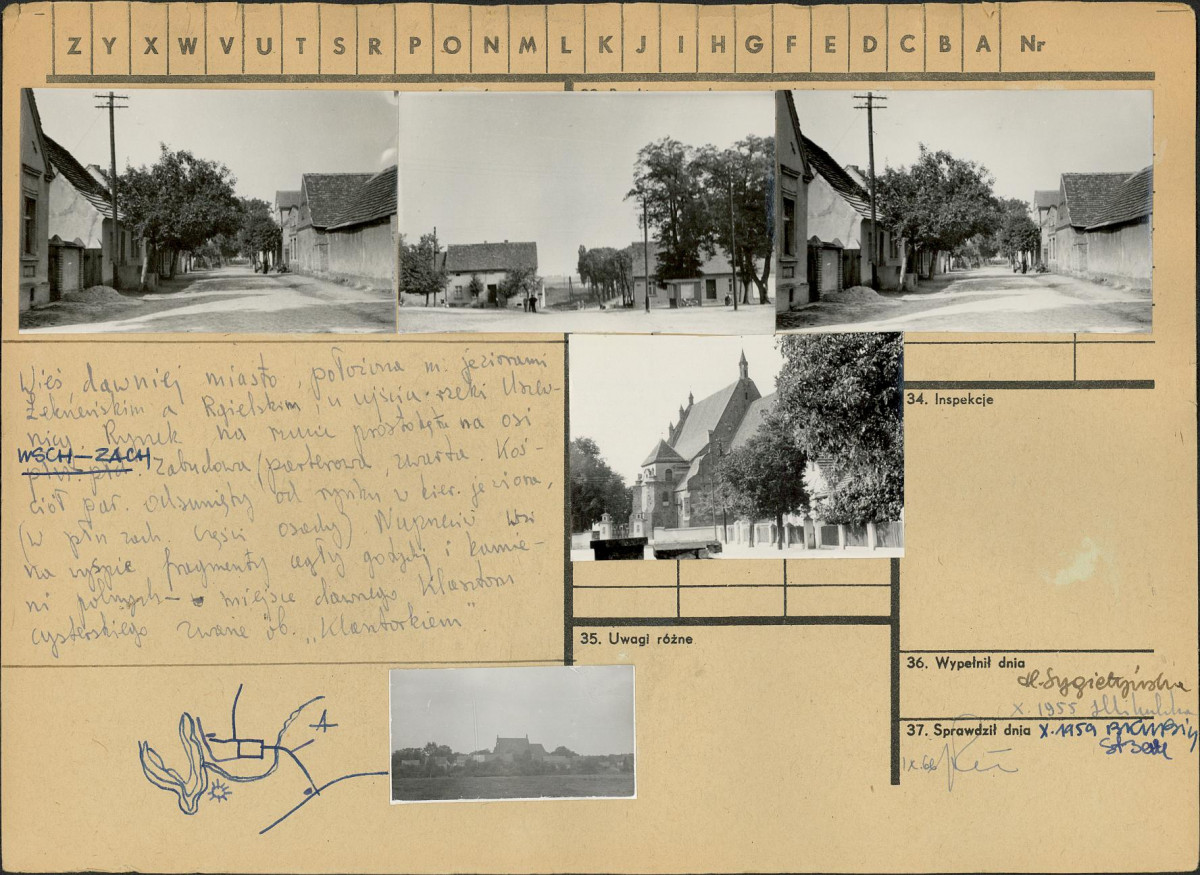 Z Y X W V U T S R P O N M L K J I H G F E D C B A Nr
Wieś dawniej miasto, położona m. jeziorami
Żekneńskim a Rgielskim, u ujścia rzeki
nicy. Rynek na rzucie prostokąta na osi
WSCH–ZACH zabudowa parterowa, zwarta. Koś-
ciół par. odsunięty od rynku w kier. jeziora,
(w płn zach. części osady) Naprzeciw wsi
na wyspie fragmenty cegły gotyckiej i kamie-
ni polnych – miejsce dawnego klasztoru
cysterskiego zwane ob. „Klasztorkiem”
34. Inspekcje
35. Uwagi różne
36. Wypełnił dnia
X. 1955
37. Sprawdził dnia X.1959
IX.66